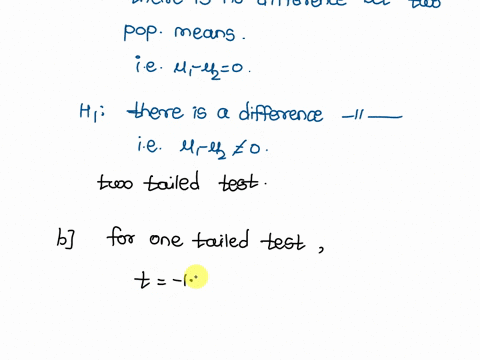 there is no difference bet two
pop. means.
i.e. μ₁-μ₂=0.
H₁: there is a difference -11-
i.e. μ₁-μ₂ ≠ 0.
two tailed test.
b] for one tailed test,
t = -1.